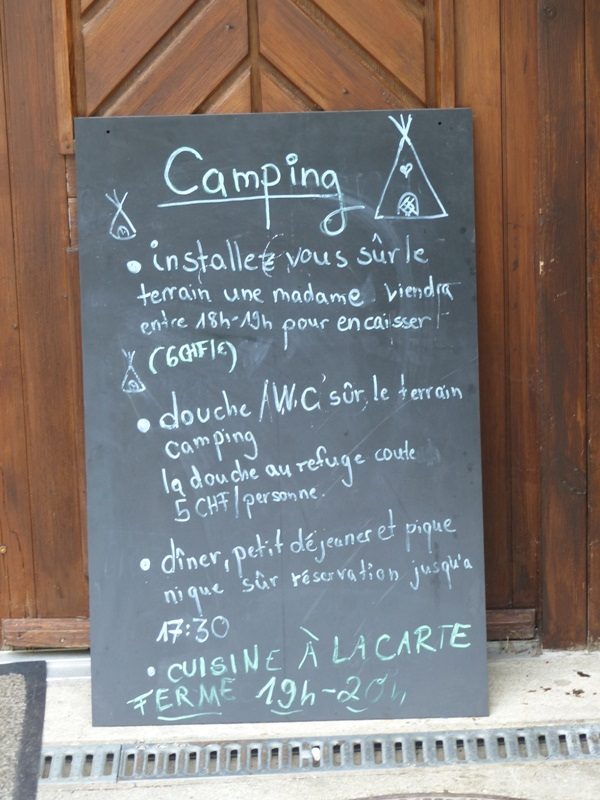 Camping
• installez vous sûr le
terrain une madame viendra
entre 18h-19h pour encaisser
(6CHF/€)
• douche /W.C sûr le terrain
camping
la douche au refuge coute
5 CHF/personne.
• dîner, petit déjeaner et pique
nique sûr réservation jusqu'a
17:30
• CUISINE À LA CARTE
FERME 19h-20h